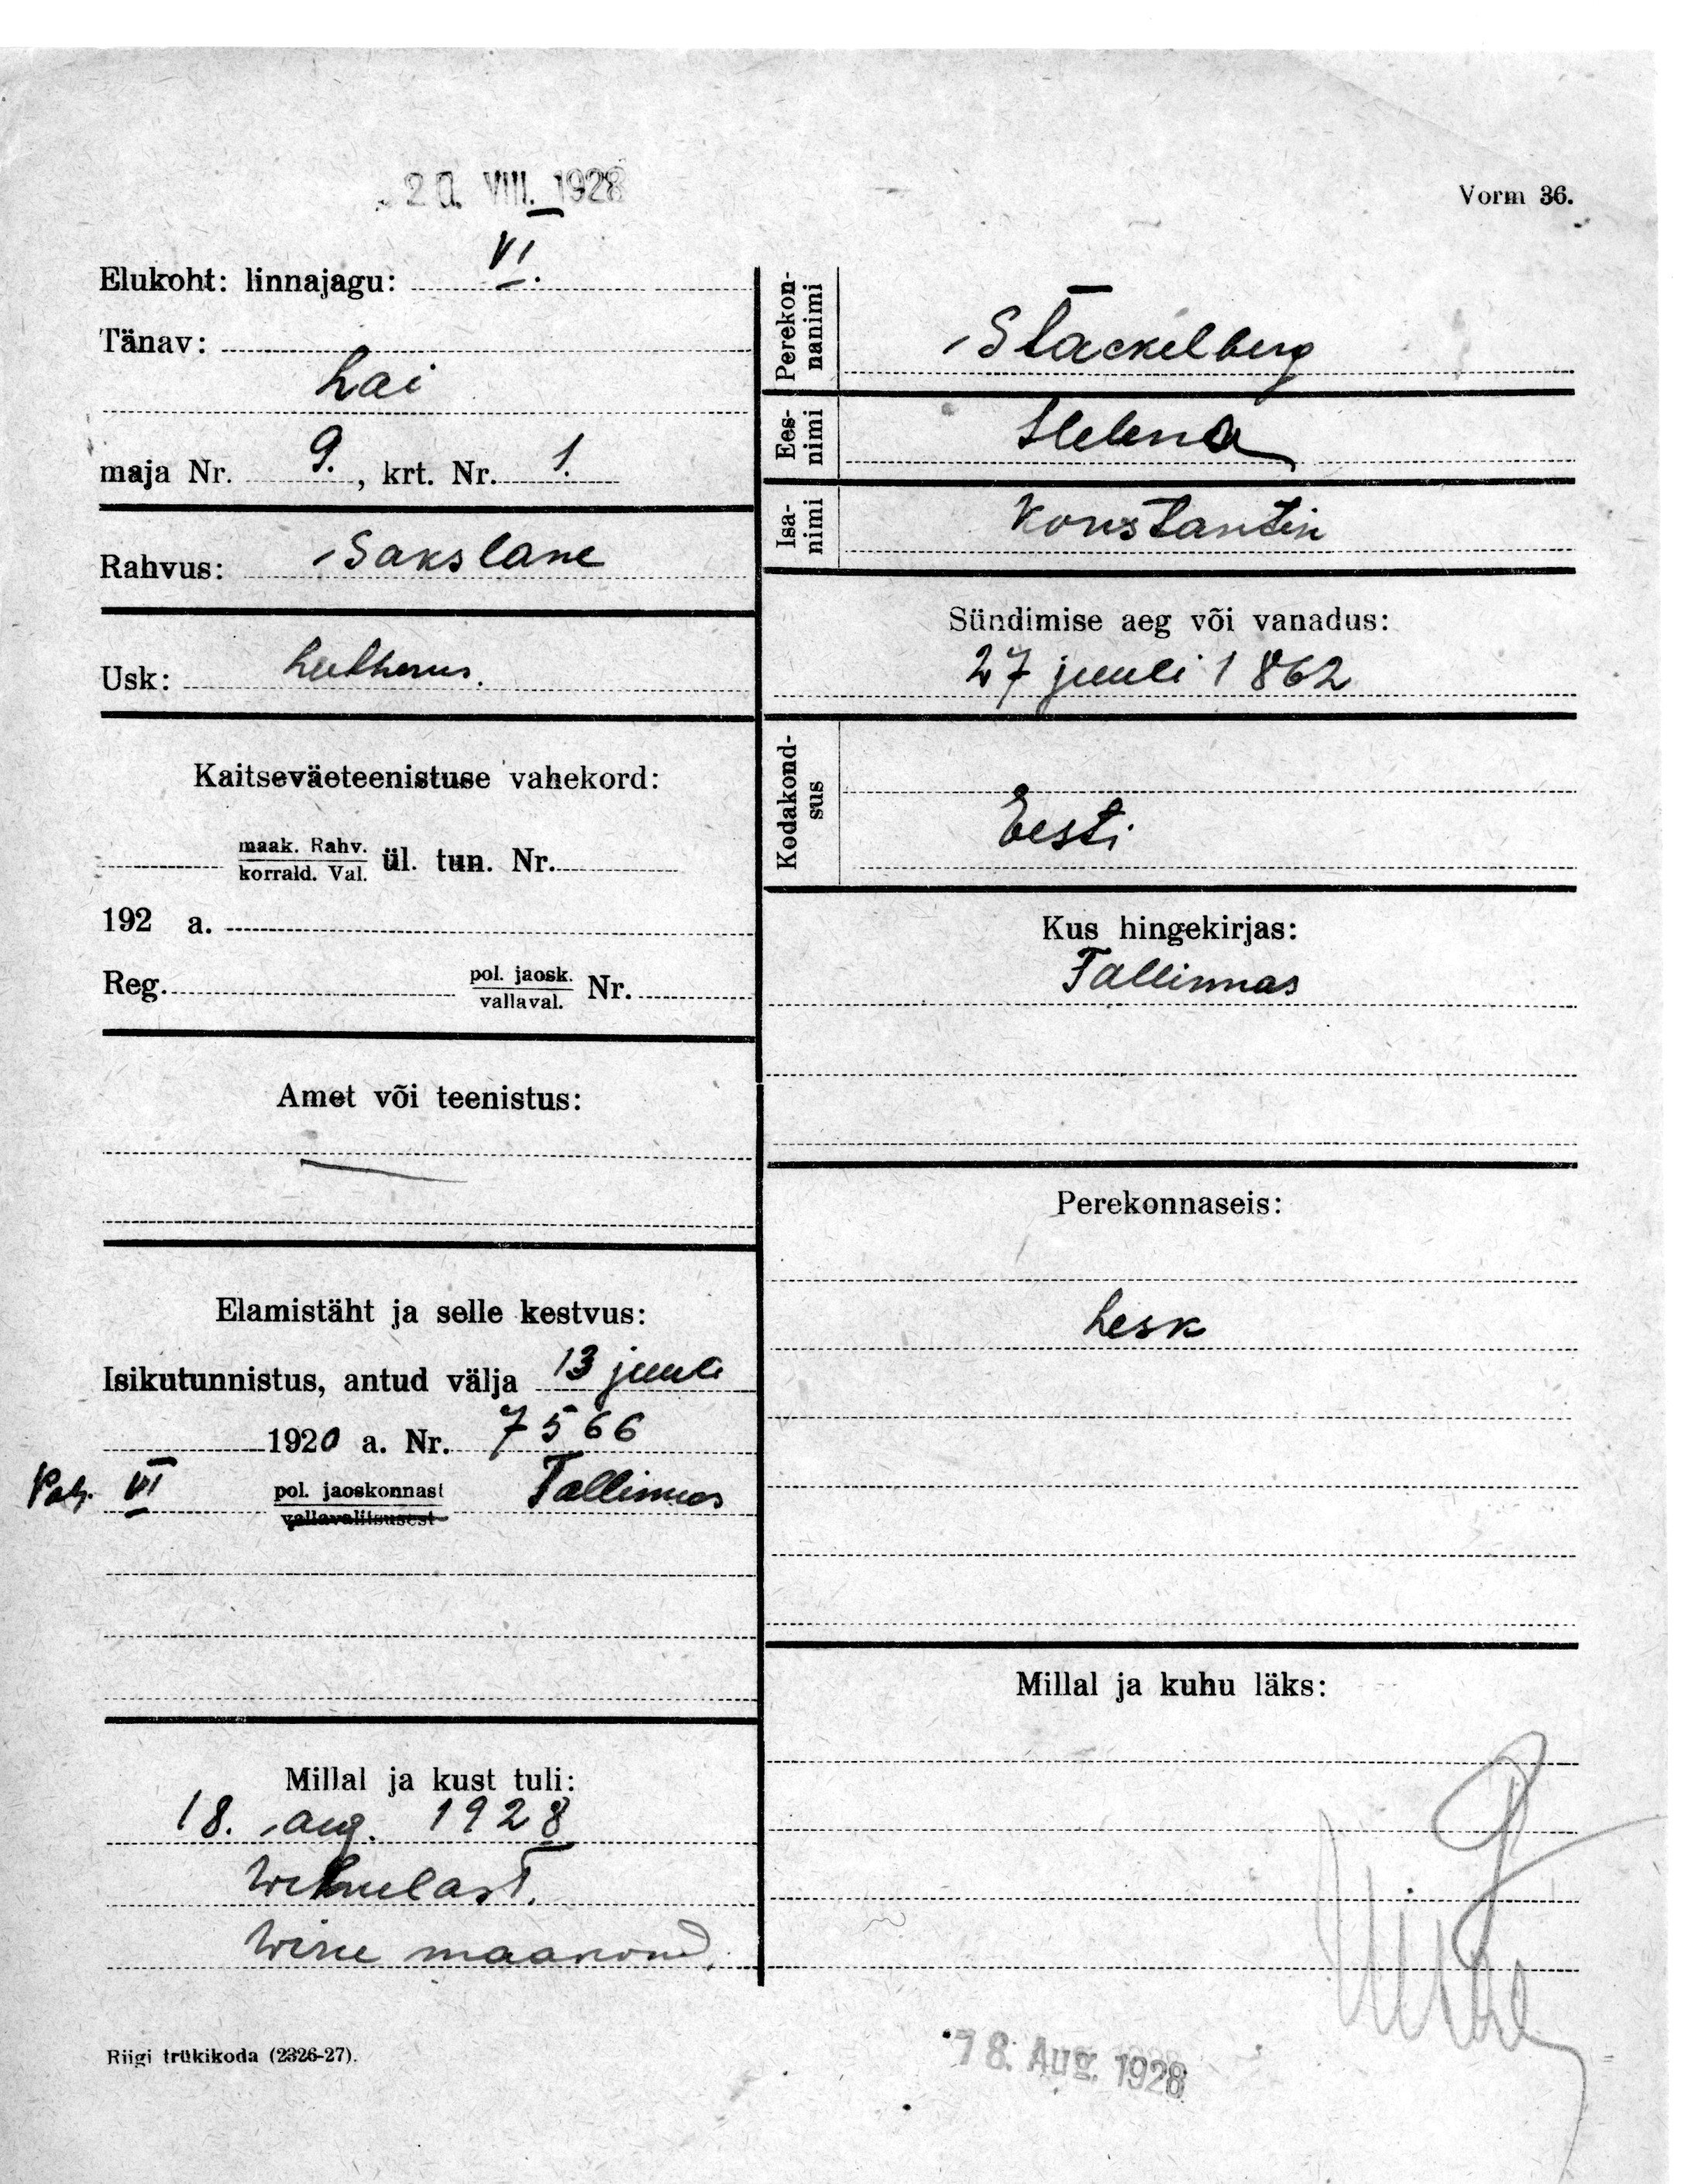 20. VIII. 1928
Vorm 36.
Elukoht: linnajagu: VI.
Tänav:
Lai
maja Nr. 9., krt. Nr. 1.
Rahvus: Sakslane
Usk: Lutherus.
Kaitseväeteenistuse vahekord:
maak. Rahv.
korrald. Val. ül. tun. Nr.
192 a.
Reg. pol. jaosk.
vallaval. Nr.
Amet või teenistus:
Elamistäht ja selle kestvus:
Isikutunnistus, antud välja 13 juuli
1920 a. Nr. 7566
VI pol. jaoskonnast Tallinnas
vallavalitsusest
Millal ja kust tuli:
18. aug. 1928
maakond.
Riigi trükikoda (2326-27).
Perekon-
nanimi
Stackelberg
Ees-
nimi
Helena
Isa-
nimi
Konstantin
Sündimise aeg või vanadus:
27 juuli 1862
Kodakond-
sus
Eesti
Kus hingekirjas:
Tallinnas
Perekonnaseis:
Lesk
Millal ja kuhu läks:
18. Aug. 1928